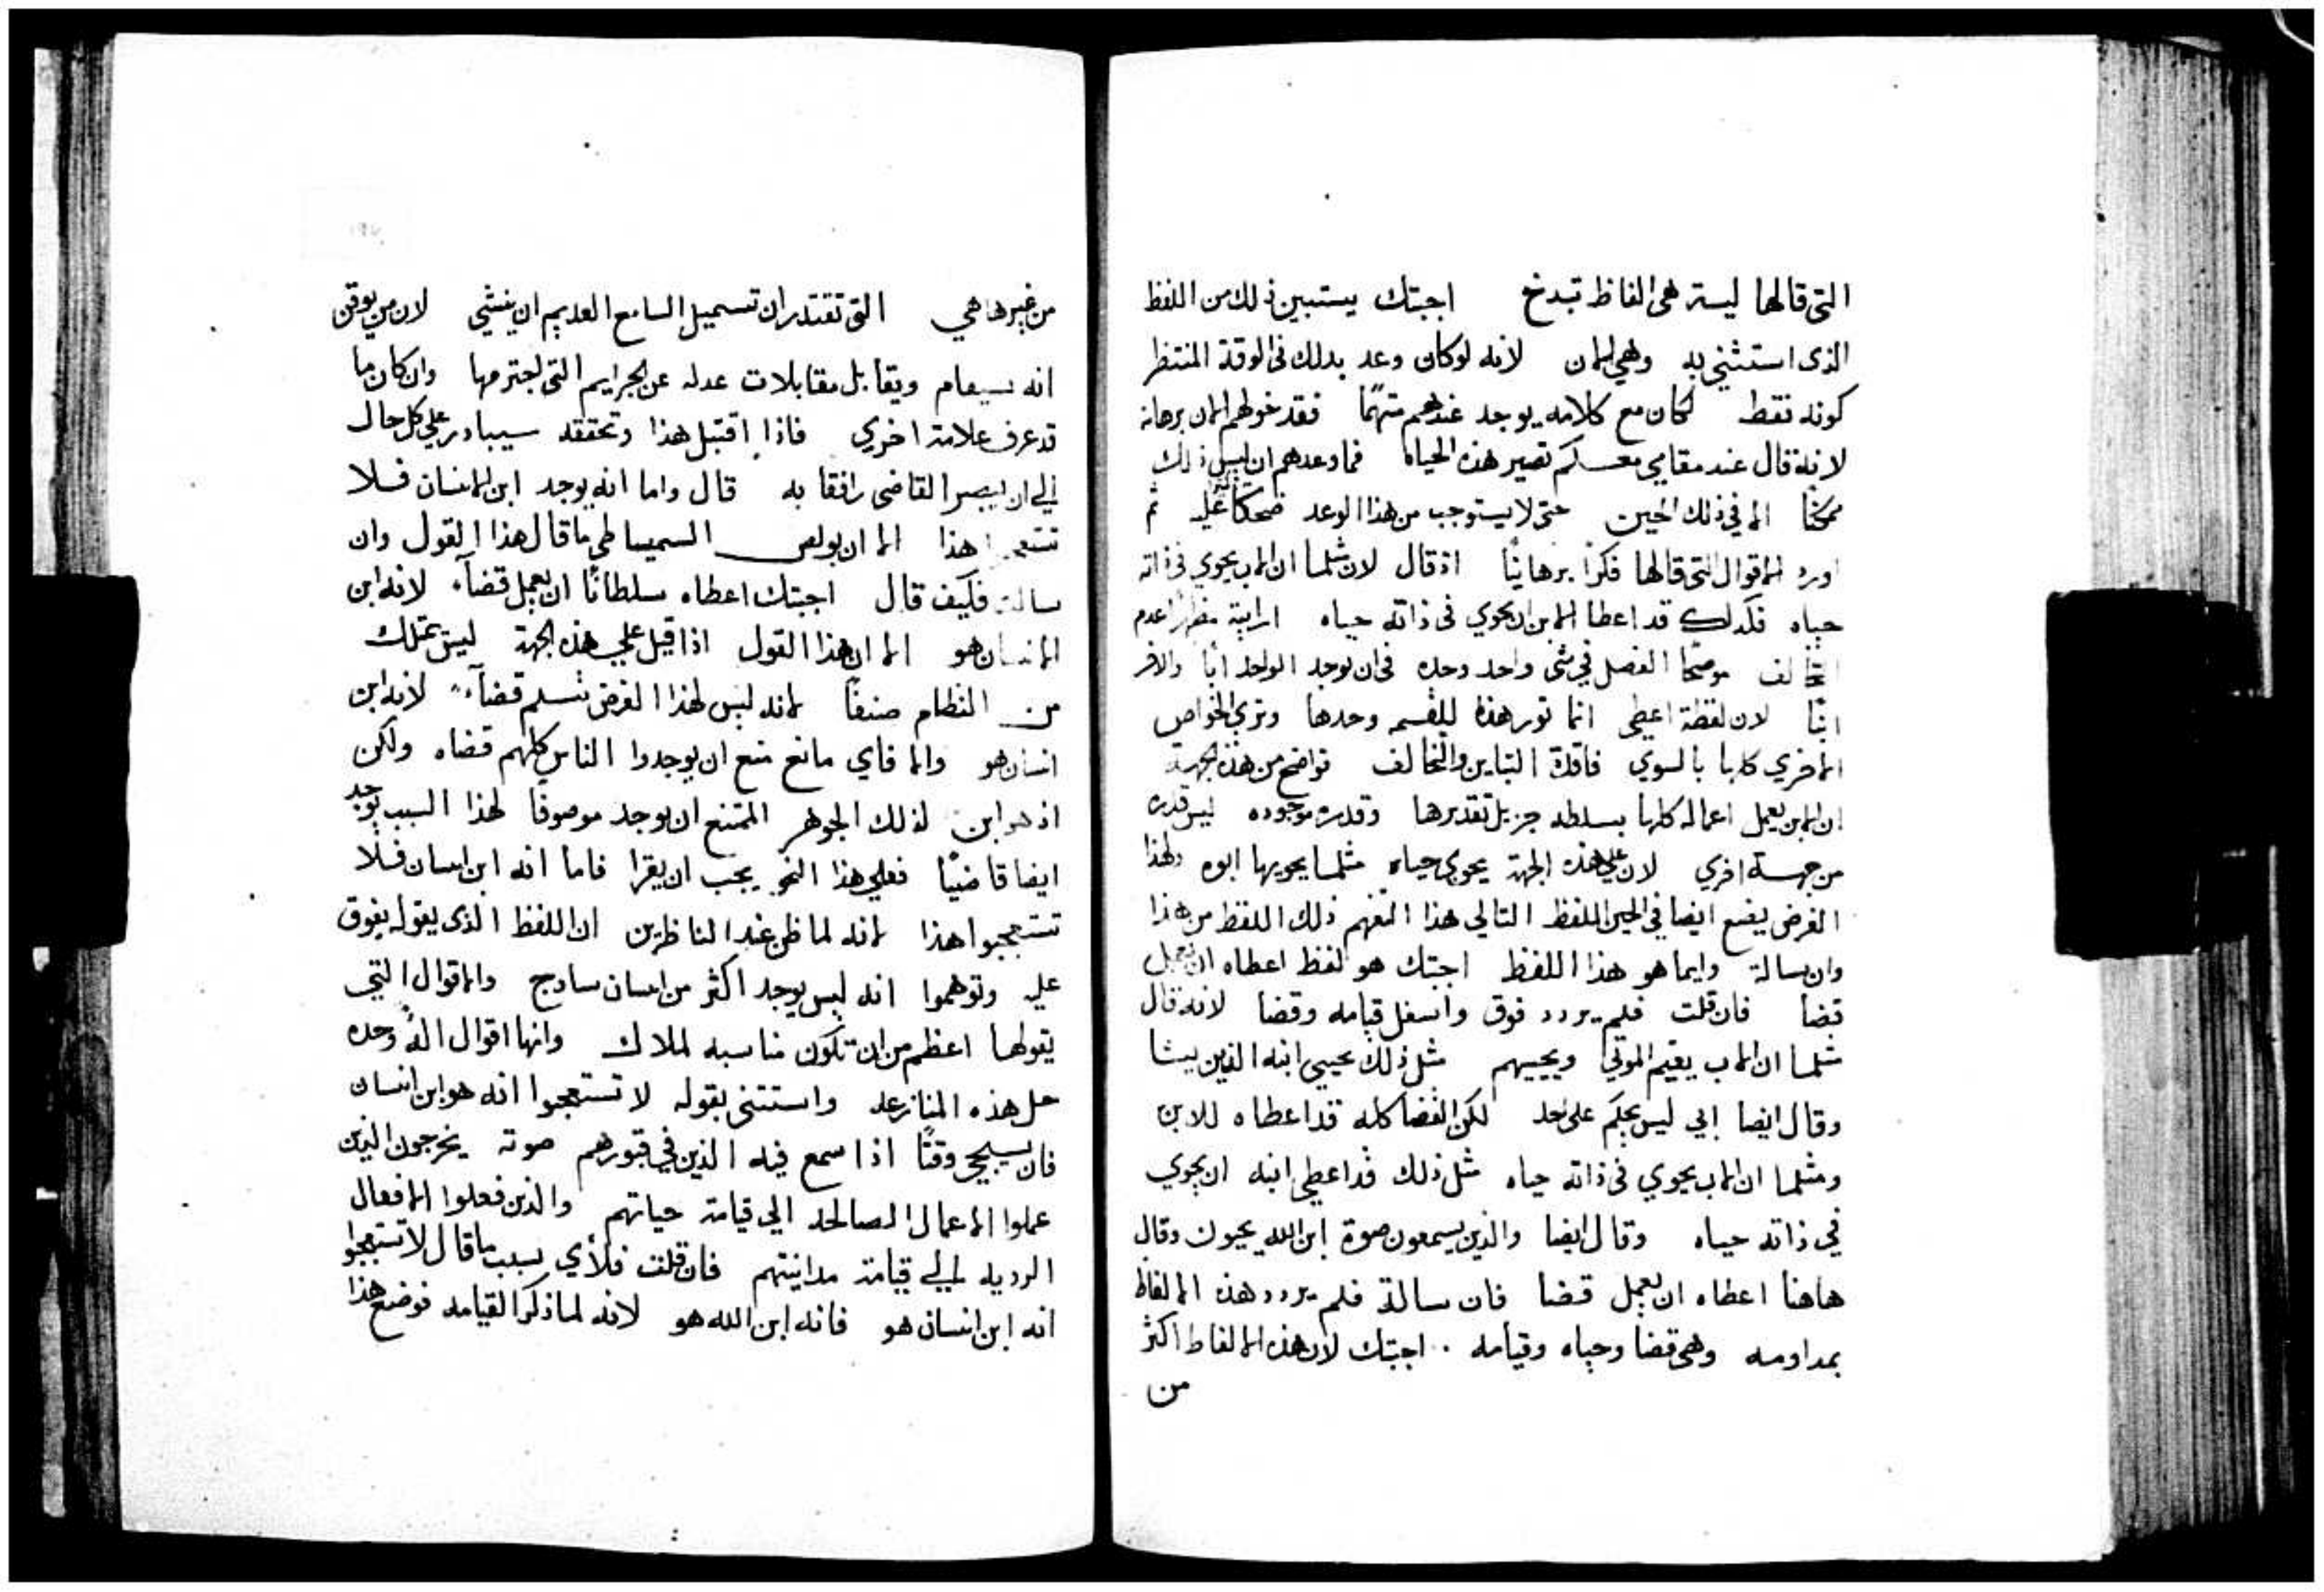 التى قالها ليسة هى الفاظ تبدخ اجبتك يستبين ذلك من اللفظ
الذى استثنى به وهى الان لانه لو كان وعد بذلك فى الوقة المنتظر
كونه فقط لكان مع كلامه يوجد عندهم متهمًا فقد خولهم الان برهانه
لانه قال عند مقامي معسكم تصير هذه الحياه فما وعدهم ان ليس ذلك
ممكنًا الا في ذلك الحين حتى لا يستوجب من هذا الوعد ضحكًا عليه ثم
اورد الاقوال التى قالها فكرًا برهانيًا اذ قال لان مثلما ان الاب يحوي فى ذاته
حياه فكذلك قد اعطا الابن ان يحوي فى ذاته حياه ارايته مظهرًا عدم
التخالف موضحًا الفصل في شى واحد وحده فى ان يوجد الواحد ابًا والاخر
ابنًا لان لفظة اعطى انما تورد هذه القسمه وحدها وتري الخواص
الاخري كلها بالسوي فاقدة التباين والتخالف فواضح من هذه الجهة
ان الابن يعمل اعماله كلها بسلطه جزيل تقديرها وقدره موجوده ليس قدره
من جهة اخري لان على هذه الجهة يحوي حياه مثلما يحويها ابوه ولهذا
الغرض يضع ايضا في الحين اللفظ التالي هذا التفهم ذلك اللفظ من هذا
وان سالة وايما هو هذا اللفظ اجبتك هو لفظ اعطاه ان يعمل
قضا فان قلت فلم يردد فوق واسفل قيامه وقضا لانه قال
مثلما ان الاب يقيم الموتي ويحييهم مثل ذلك يحيى ابنه الذين يشا
وقال ايضا ابي ليس يحكم على احد لكن القضا كله قد اعطاه للابن
ومثلما ان الاب يحوي فى ذاته حياه مثل ذلك قد اعطى ابنه ان يحوي
في ذاته حياه وقال ايضا والذين يسمعون صوة ابن الله يحيون وقال
هاهنا اعطاه ان يعمل قضا فان سالة فلم يردد هذه الالفاظ
بمداومه وهى قضا وحياه وقيامه . اجبتك لان هذه الالفاظ اكثر
من
من غيرها هي التى تقتدر ان تسميل السامع العديم ان ينثني لان من يوقن
انه سيقام ويقابل مقابلات عدله عن الجرايم التى اجترمها وان كان ما
قد عرف علامة اخري فاذا اقتبل هذا وتحققه سيبادر على كل حال
الي ان يصير القاضى رافقا به قال واما انه يوجد ابن الانسان فلا
تتعجبوا هذا الا ان بولص السميساطي ما قال هذا القول وان
سالت فكيف قال اجبتك اعطاه سلطانًا ان يعمل قضآء لانه ابن
الانسان هو الا ان هذا القول اذا قيل علي هذه الجهة ليس يمتلك
من النظام صنفًا لانه ليس لهذا الغرض تسلم قضآء لانه ابن
انسان هو والا فاي مانع منع ان يوجدوا الناس كلهم قضاه ولكن
اذ هو ابن لذلك الجوهر الممتنع ان يوجد موصوفًا لهذا السبب يوجد
ايضا قاضيًا فعلى هذا النحو يجب ان يقرا فاما انه ابن انسان فلا
تستعجبوا هذا لانه لما ظن عند الناظرين ان اللفظ الذى يقوله يفوق
عليه وتوهموا انه ليس يوجد اكثر من انسان سادج والاقوال التي
يقولها اعظم من ان تكون مناسبه لملاك وانها اقوال الله وحده
حل هذه المنازعه واستثنى بقوله لا تستعجبوا انه هو ابن انسان
فان سيجي وقتًا اذا سمع فيه الذين في قبورهم صوته يخرجون الذين
عملوا الاعمال الصالحه الي قيامة حياتهم والذين فعلوا الافعال
الرديه الي قيامة مداينتهم فان قلت فلأي سبب ما قال لا تستعجبوا
انه ابن انسان هو فانه ابن الله هو لانه لما ذكر القيامه فوضع هذا